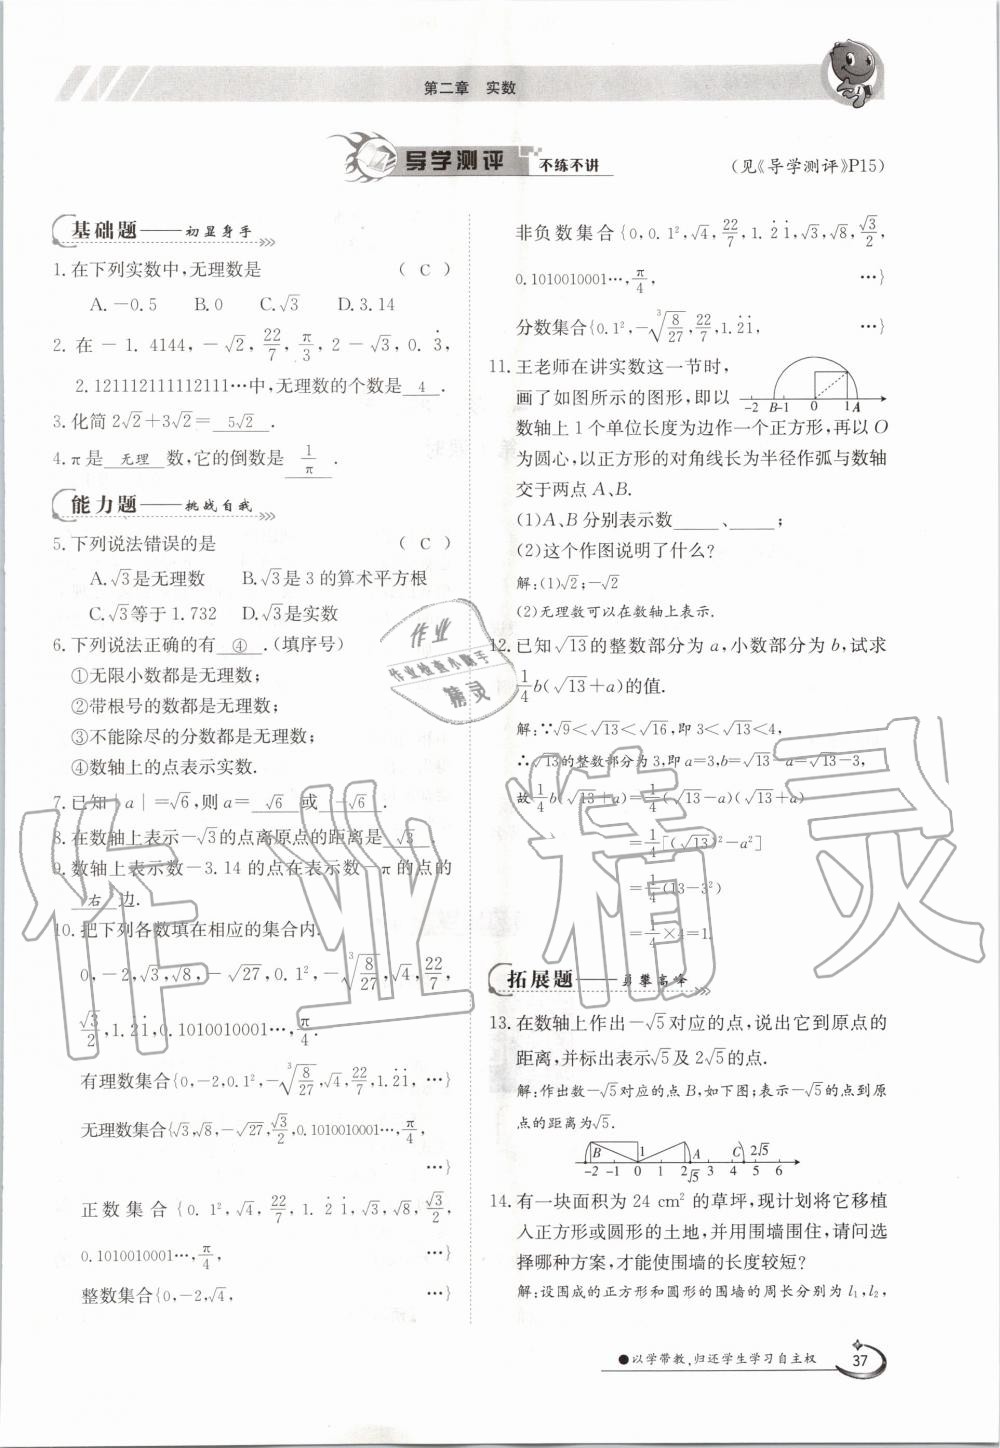 第二章 实数
导学测评 不练不讲
(见《导学测评》P15)
基础题——初显身手
1.在下列实数中,无理数是 ( C )
A.-0.5 B.0 C.√3 D.3.14
2.在-1.4144,-√2,22/7,π/3,2-√3,0.3̇,
2.121112111112111…中,无理数的个数是 4 .
3.化简2√2+3√2= 5√2 .
4.π是 无理 数,它的倒数是 1/π .
能力题——挑战自我
5.下列说法错误的是 ( C )
A.√3是无理数 B.√3是3的算术平方根
C.√3等于1.732 D.√3是实数
6.下列说法正确的有 ④ .(填序号)
①无限小数都是无理数;
②带根号的数都是无理数;
③不能除尽的分数都是无理数;
④数轴上的点表示实数.
7.已知|a|=√6,则a= √6 或 -√6 .
8.在数轴上表示-√3的点离原点的距离是 √3
9.数轴上表示数-3.14的点在表示数-π的点的
右 边.
10.把下列各数填在相应的集合内.
0,-2,√3,√8,-√27,0.1²,-³√(8/27),√4,22/7,
√3/2,1.2̇1̇,0.1010010001…,π/4.
有理数集合{0,-2,0.1²,-³√(8/27),√4,22/7,1.2̇1̇, …}
无理数集合{√3,√8,-√27,√3/2,0.1010010001…,π/4,
…}
正数集合{0.1²,√4,22/7,1.2̇1̇,√3,√8,√3/2,
0.1010010001…,π/4, …}
整数集合{0,-2,√4, …}
非负数集合{0,0.1²,√4,22/7,1.2̇1̇,√3,√8,√3/2,
0.1010010001…,π/4, …}
分数集合{0.1²,-³√(8/27),22/7,1.2̇1̇, …}
11.王老师在讲实数这一节时,
画了如图所示的图形,即以
-2 B -1 0 1 A
数轴上1个单位长度为边作一个正方形,再以O
为圆心,以正方形的对角线长为半径作弧与数轴
交于两点A、B.
(1)A、B分别表示数____、____;
(2)这个作图说明了什么?
解:(1)√2;-√2
(2)无理数可以在数轴上表示.
12.已知√13的整数部分为a,小数部分为b,试求
1/4b(√13+a)的值.
解:∵√9<√13<√16,即3<√13<4,
∴√13的整数部分为3,即a=3,b=√13-a=√13-3,
故1/4b(√13+a)=1/4(√13-a)(√13+a)
=1/4[(√13)²-a²]
=1/4(13-3²)
=1/4×4=1.
拓展题——勇攀高峰
13.在数轴上作出-√5对应的点,说出它到原点的
距离,并标出表示√5及2√5的点.
解:作出数-√5对应的点B,如下图;表示-√5的点到原
点的距离为√5.
B 1 A C 2√5
-2 -1 0 1 2 √5 3 4 5 6
14.有一块面积为24 cm²的草坪,现计划将它移植
入正方形或圆形的土地,并用围墙围住,请问选
择哪种方案,才能使围墙的长度较短?
解:设围成的正方形和圆形的围墙的周长分别为l₁,l₂,
●以学带教,归还学生学习自主权
37
作业
作业检查小助手
精灵
作业精灵